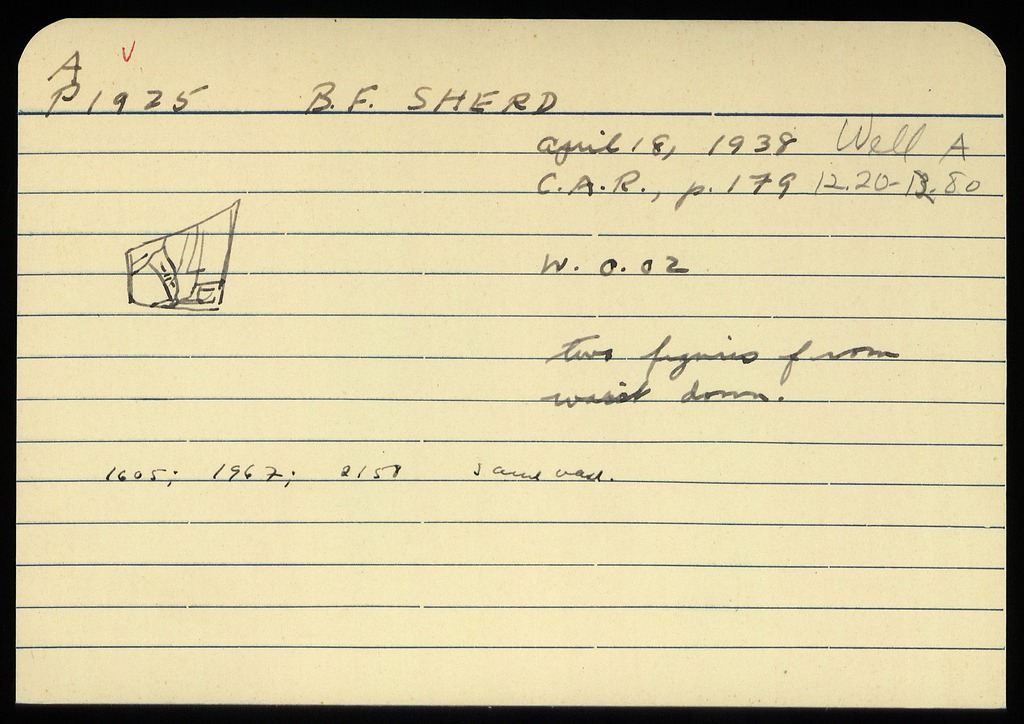 A V
P 1925 B.F. SHERD
april 18, 1938 Well A
C.A.R., p. 179 12.20-13.80
W. 0.02
two figures from
waist down.
1605; 1967; 2158 same vase.